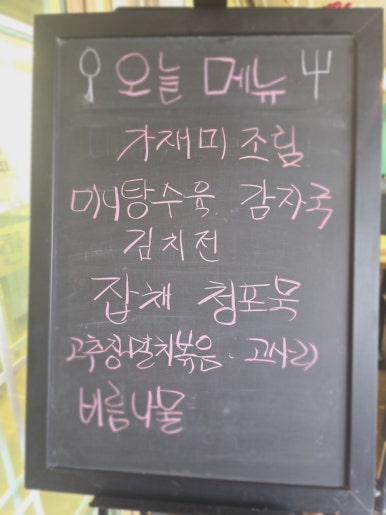 오늘 메뉴
가재미 조림
미니탕수육 감자국
김치전
잡채 청포묵
고추장멸치볶음. 고사리
비름나물